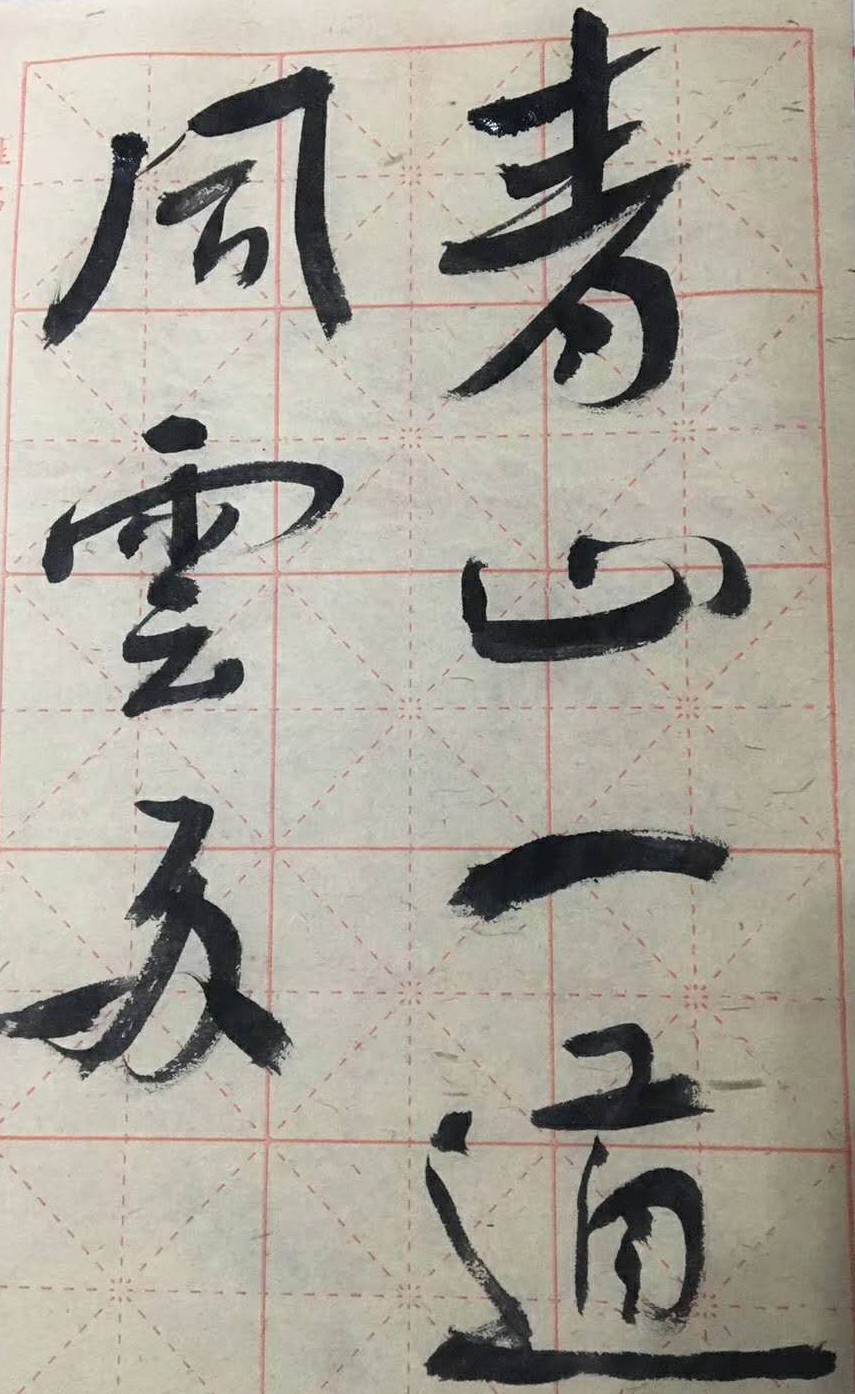 青山一道
同雲